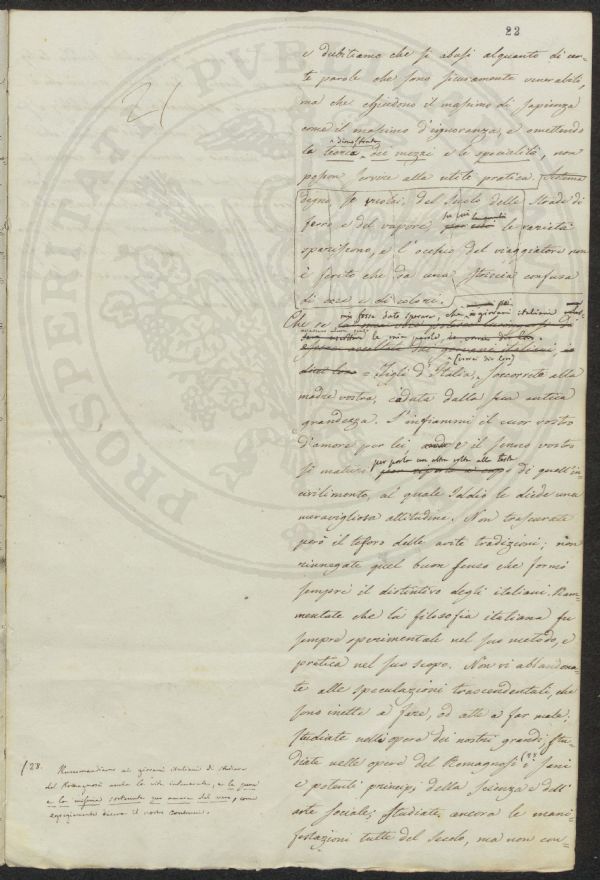 22
21
e dubitiamo che si abusi alquanto di cer-
te parole che sono sicuramente venerabili,
ma che chiudono il massimo di sapienza
come il massimo d'ignoranza, e omettendo
a dimostrare
la teoria dei mezzi e le specialità, non
posson servire alla utile pratica.
degno, se vuolsi, del Secolo delle Strade di
ferro e del vapore, le varietà
spariscono, e l'occhio del viaggiatore non
è ferito che da una striscia confusa
di cose e di colori.
mi fosse dato sperare, che i giovani italiani
Che se
le mie parole,
(vorrei dir loro)
= Figli d'Italia, soccorrete alla
madre vostra, caduta dalla sua antica
grandezza. S'infiammi il cuor vostro
d'amore per lei e il senno vostro
per porla un'altra volta alla testa
si maturi di quell'in-
civilimento, al quale Iddio le diede una
meravigliosa attitudine. Non trascurate
però il tesoro delle avite tradizioni; non
rinnegate quel buon senso che formò
sempre il distintivo degli italiani. Ram=
mentate che la filosofia italiana fu
sempre sperimentale nel suo metodo, e
pratica nel suo scopo. Non vi abbandona-
te alle speculazioni trascendentali, che
sono inette a fare, od atte a far male.
Studiate nelle opere dei nostri grandi; stu-
diate nelle opere del Romagnosi (28) i sani
e potenti principj della scienza e dell'
arte sociale; studiate ancora le mani-
festazioni tutte del secolo, ma non con-
(28. Raccomandiamo ai giovani italiani di studiare
del Romagnosi anche la vita intemerata, e la guerra
e la miseria sostenute per amore del vero, come